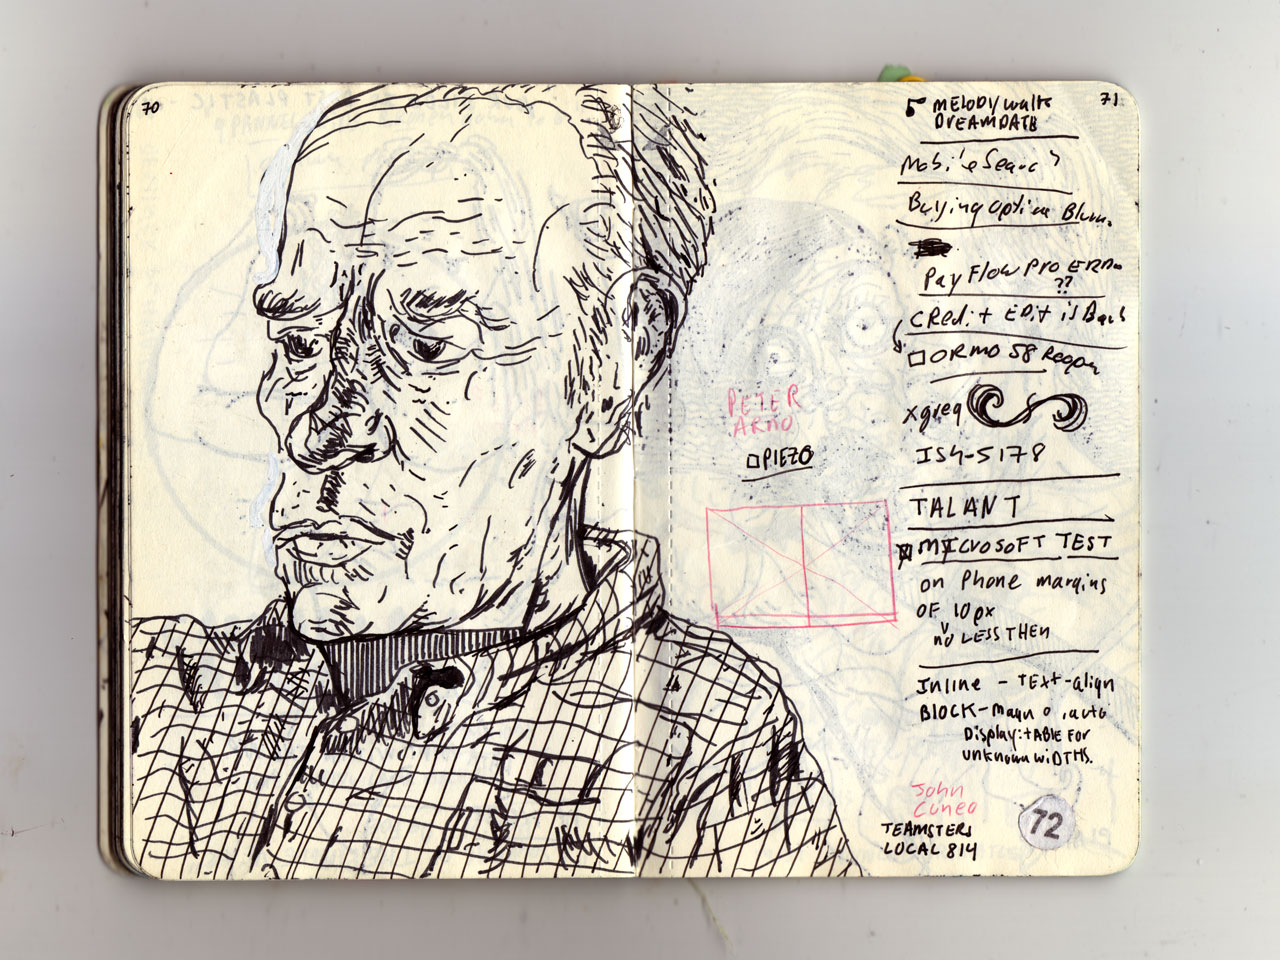 70
71
MELODY waltz
DREAMDATB
Mobile Search
Buying Option Blurm.
Pay Flow Pro ERRo
??
CRedit EDit is Back
ORMO 58 Reopen
xgreq
IS4-5178
PETER
ARNO
PIEZO
TALANT
MICROSOFT TEST
on Phone margins
OF 10px
no LESS THEN
Inline - TEXt-align
BLOCK-margn 0 , auto
Display: tABLE FOR
unknown wiDTHS.
John
Cuneo
TEAMSTERS
LOCAL 814
72